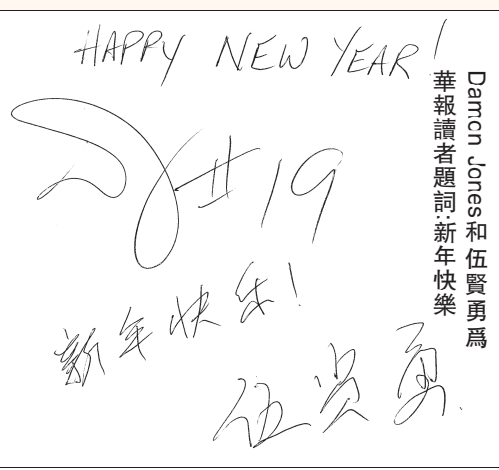 HAPPY NEW YEAR!
#19
新年快乐!
伍贤勇
Damon Jones和伍賢勇爲
華報讀者題詞:新年快樂